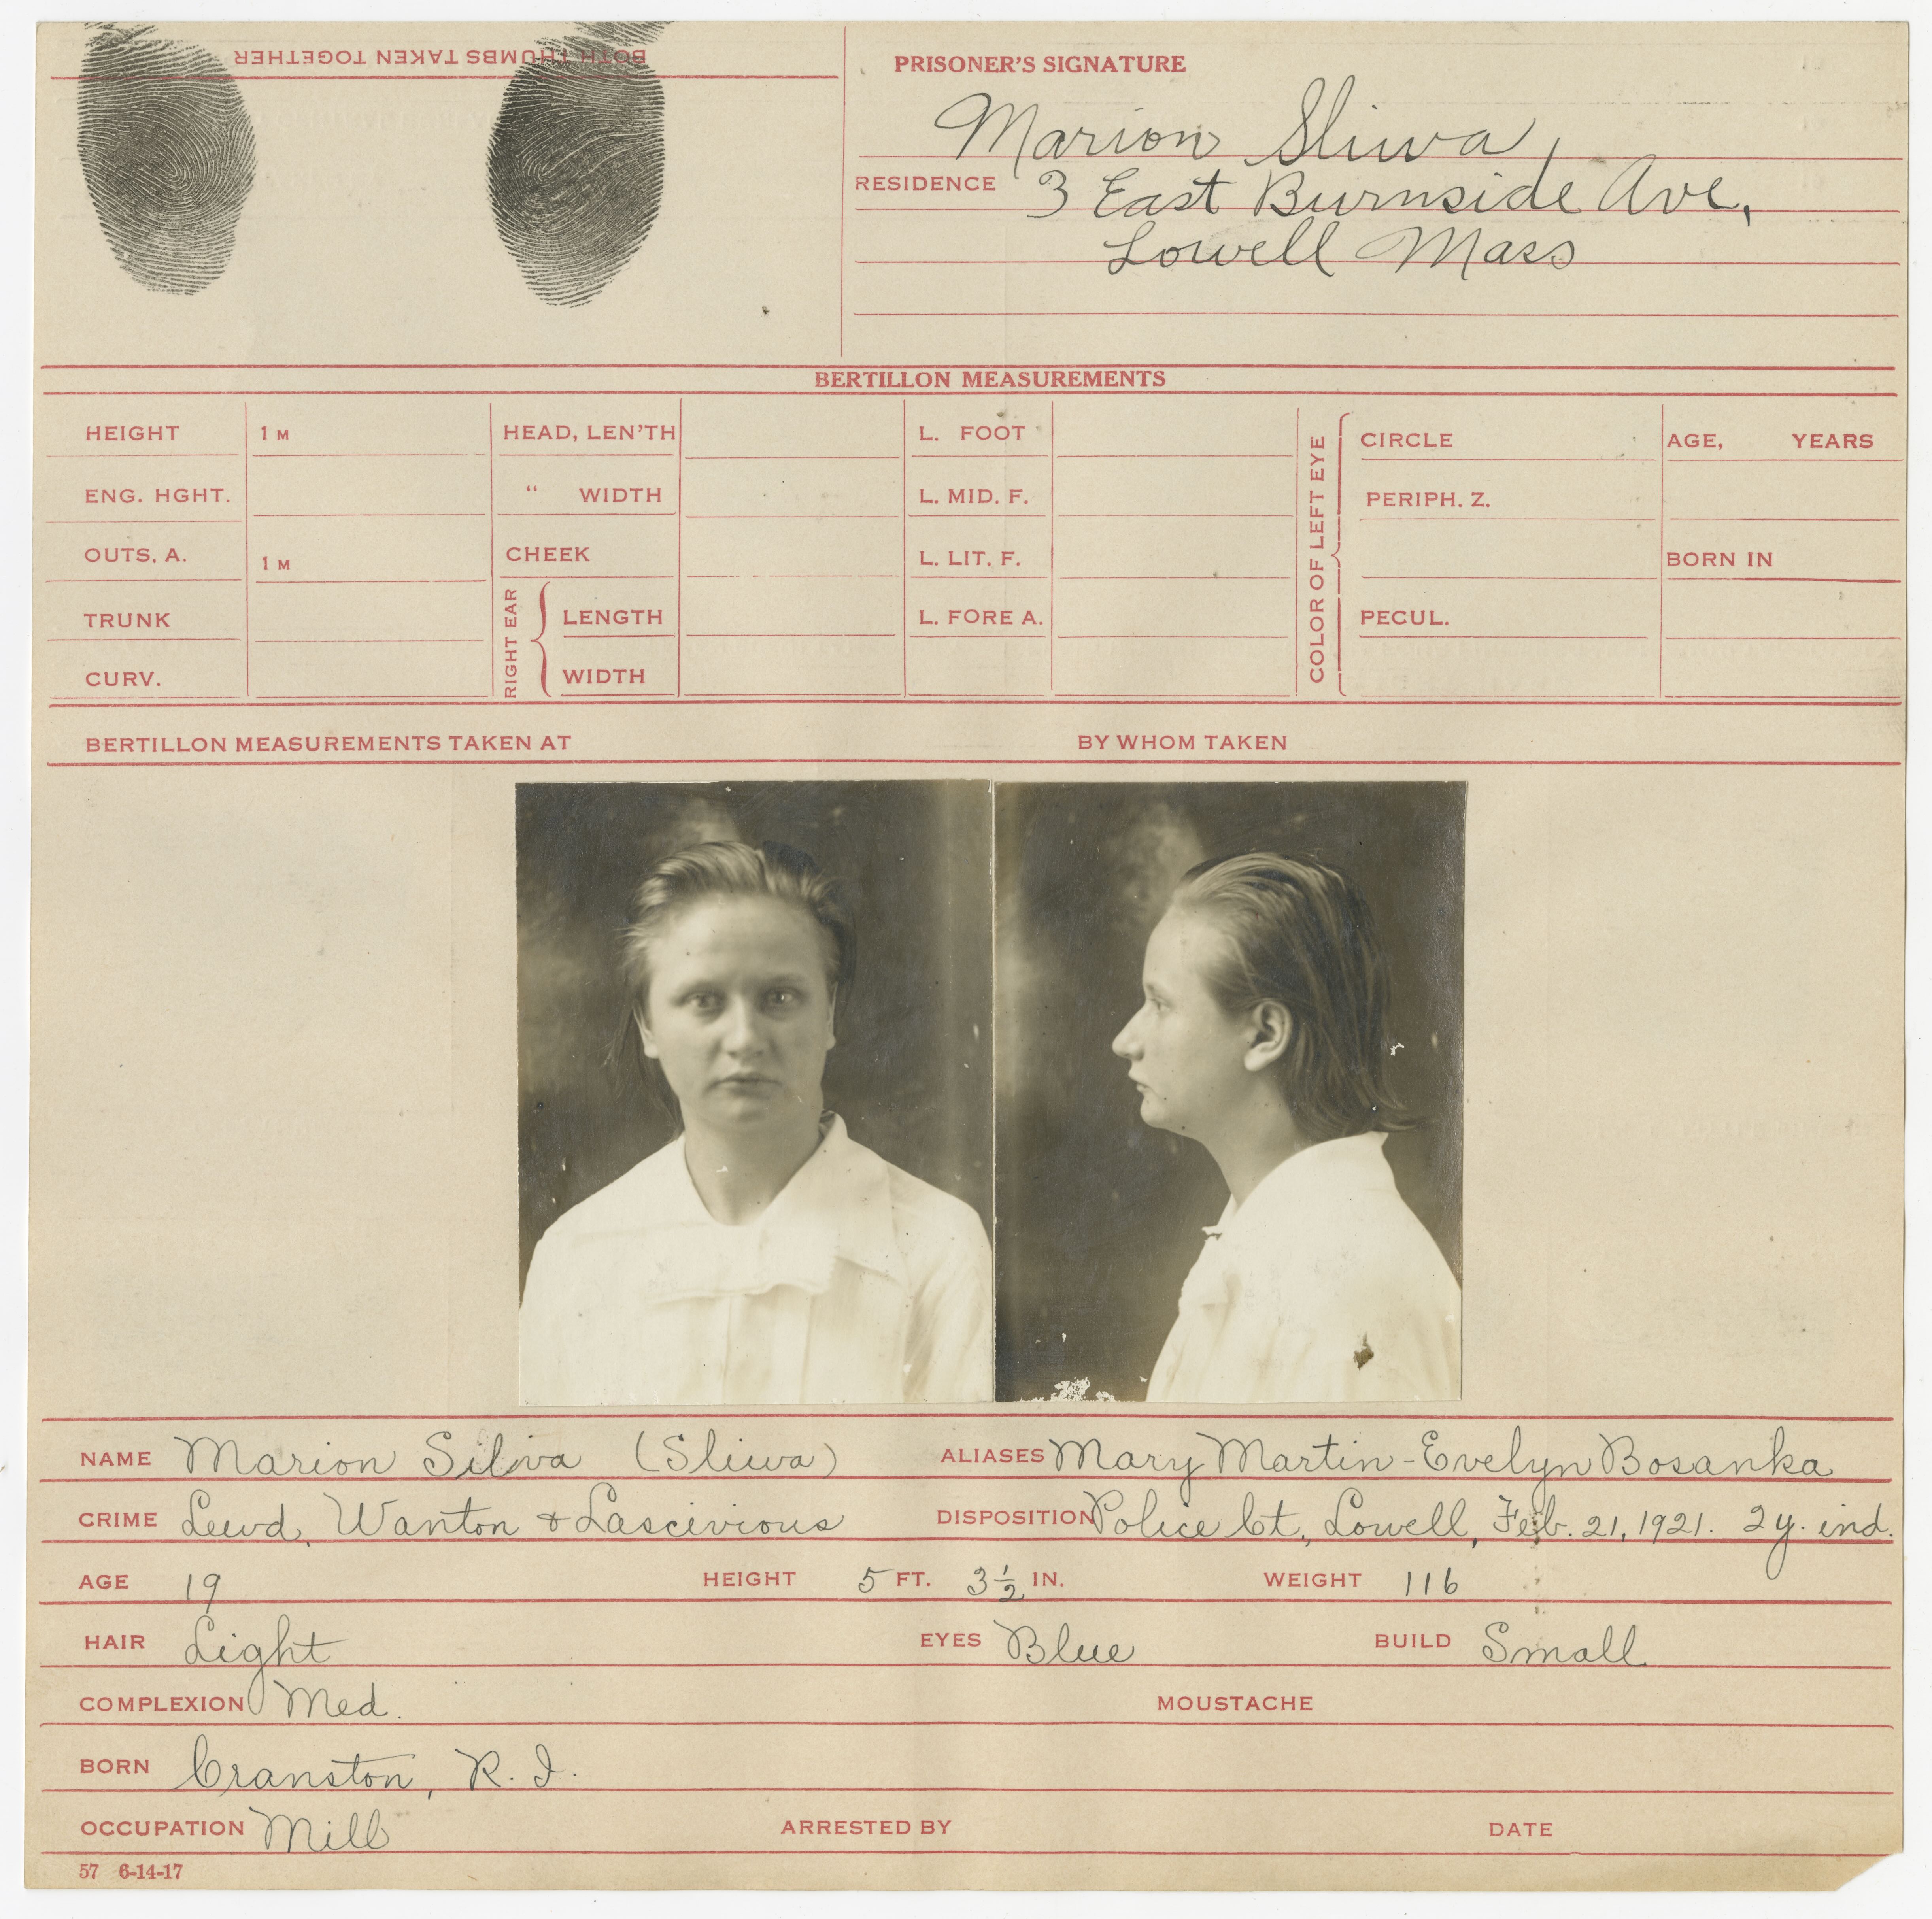 BOTH THUMBS TAKEN TOGETHER
PRISONER'S SIGNATURE
Marion Sliwa
RESIDENCE 3 East Burnside Ave,
Lowell Mass
BERTILLON MEASUREMENTS
HEIGHT 1 M HEAD, LEN'TH L. FOOT CIRCLE AGE, YEARS
ENG. HGHT. " WIDTH L. MID. F. PERIPH. Z.
OUTS, A. 1 M CHEEK L. LIT. F. BORN IN
COLOR OF LEFT EYE
RIGHT EAR
TRUNK LENGTH L. FORE A. PECUL.
CURV. WIDTH
BERTILLON MEASUREMENTS TAKEN AT BY WHOM TAKEN
NAME Marion Silva (Sliwa) ALIASES Mary Martin - Evelyn Bosanka
CRIME Lewd, Wanton & Lascivious DISPOSITION Police Ct., Lowell, Feb. 21, 1921. 2 y. ind.
AGE 19 HEIGHT 5 FT. 3 1/2 IN. WEIGHT 116
HAIR Light EYES Blue BUILD Small
COMPLEXION Med. MOUSTACHE
BORN Cranston, R. I.
OCCUPATION Mill ARRESTED BY DATE
57 6-14-17